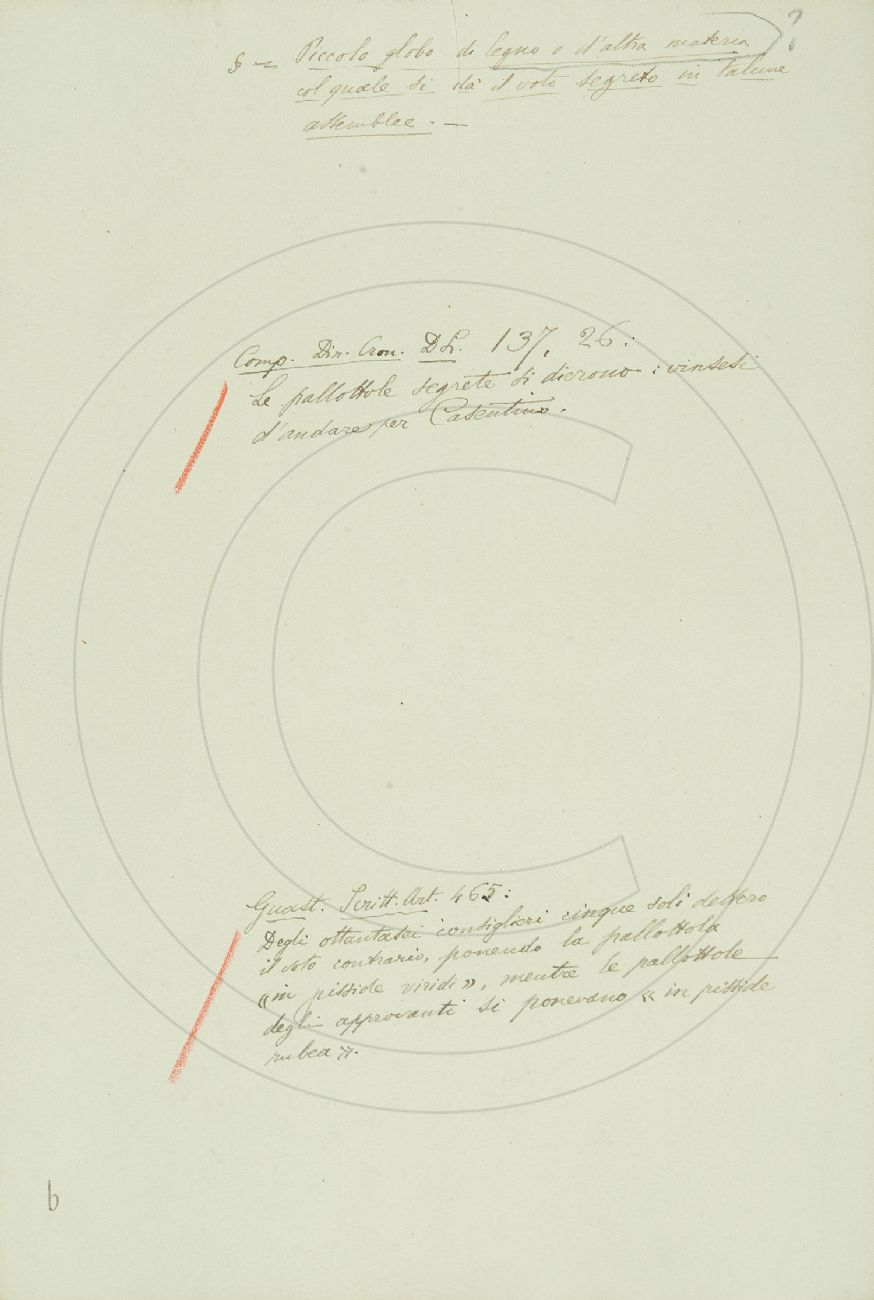 ?
§ — Piccolo globo di legno o d'altra materia
col quale si dà il voto segreto in talune
assemblee. —
Comp. Din. Cron. DL. 137, 26:
Le pallottole segrete si dierono: vinsesi
d'andare per Casentino.
Guast. Scritt. Art. 465:
Degli ottantasei consiglieri cinque soli dettero
il voto contrario, ponendo la pallottola
«in pisside viridi», mentre le pallottole
degli approvanti si ponevano «in pisside
rubea».
b